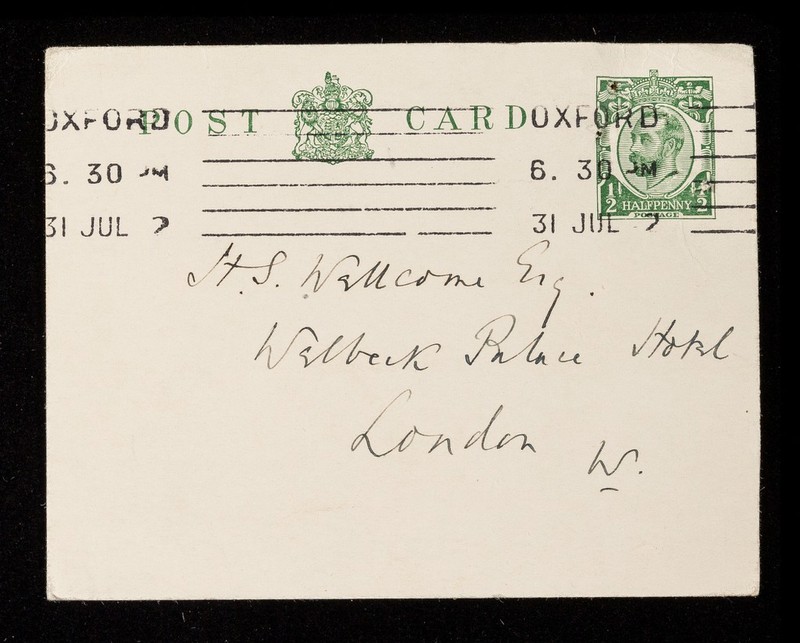 POST CARD
OXFORD OXFORD
6.30 PM 6.30 PM
31 JUL 31 JUL
1/2 HALFPENNY 1/2
POSTAGE
H. S. Wellcome Esq.
Welbeck Palace Hotel
London W.